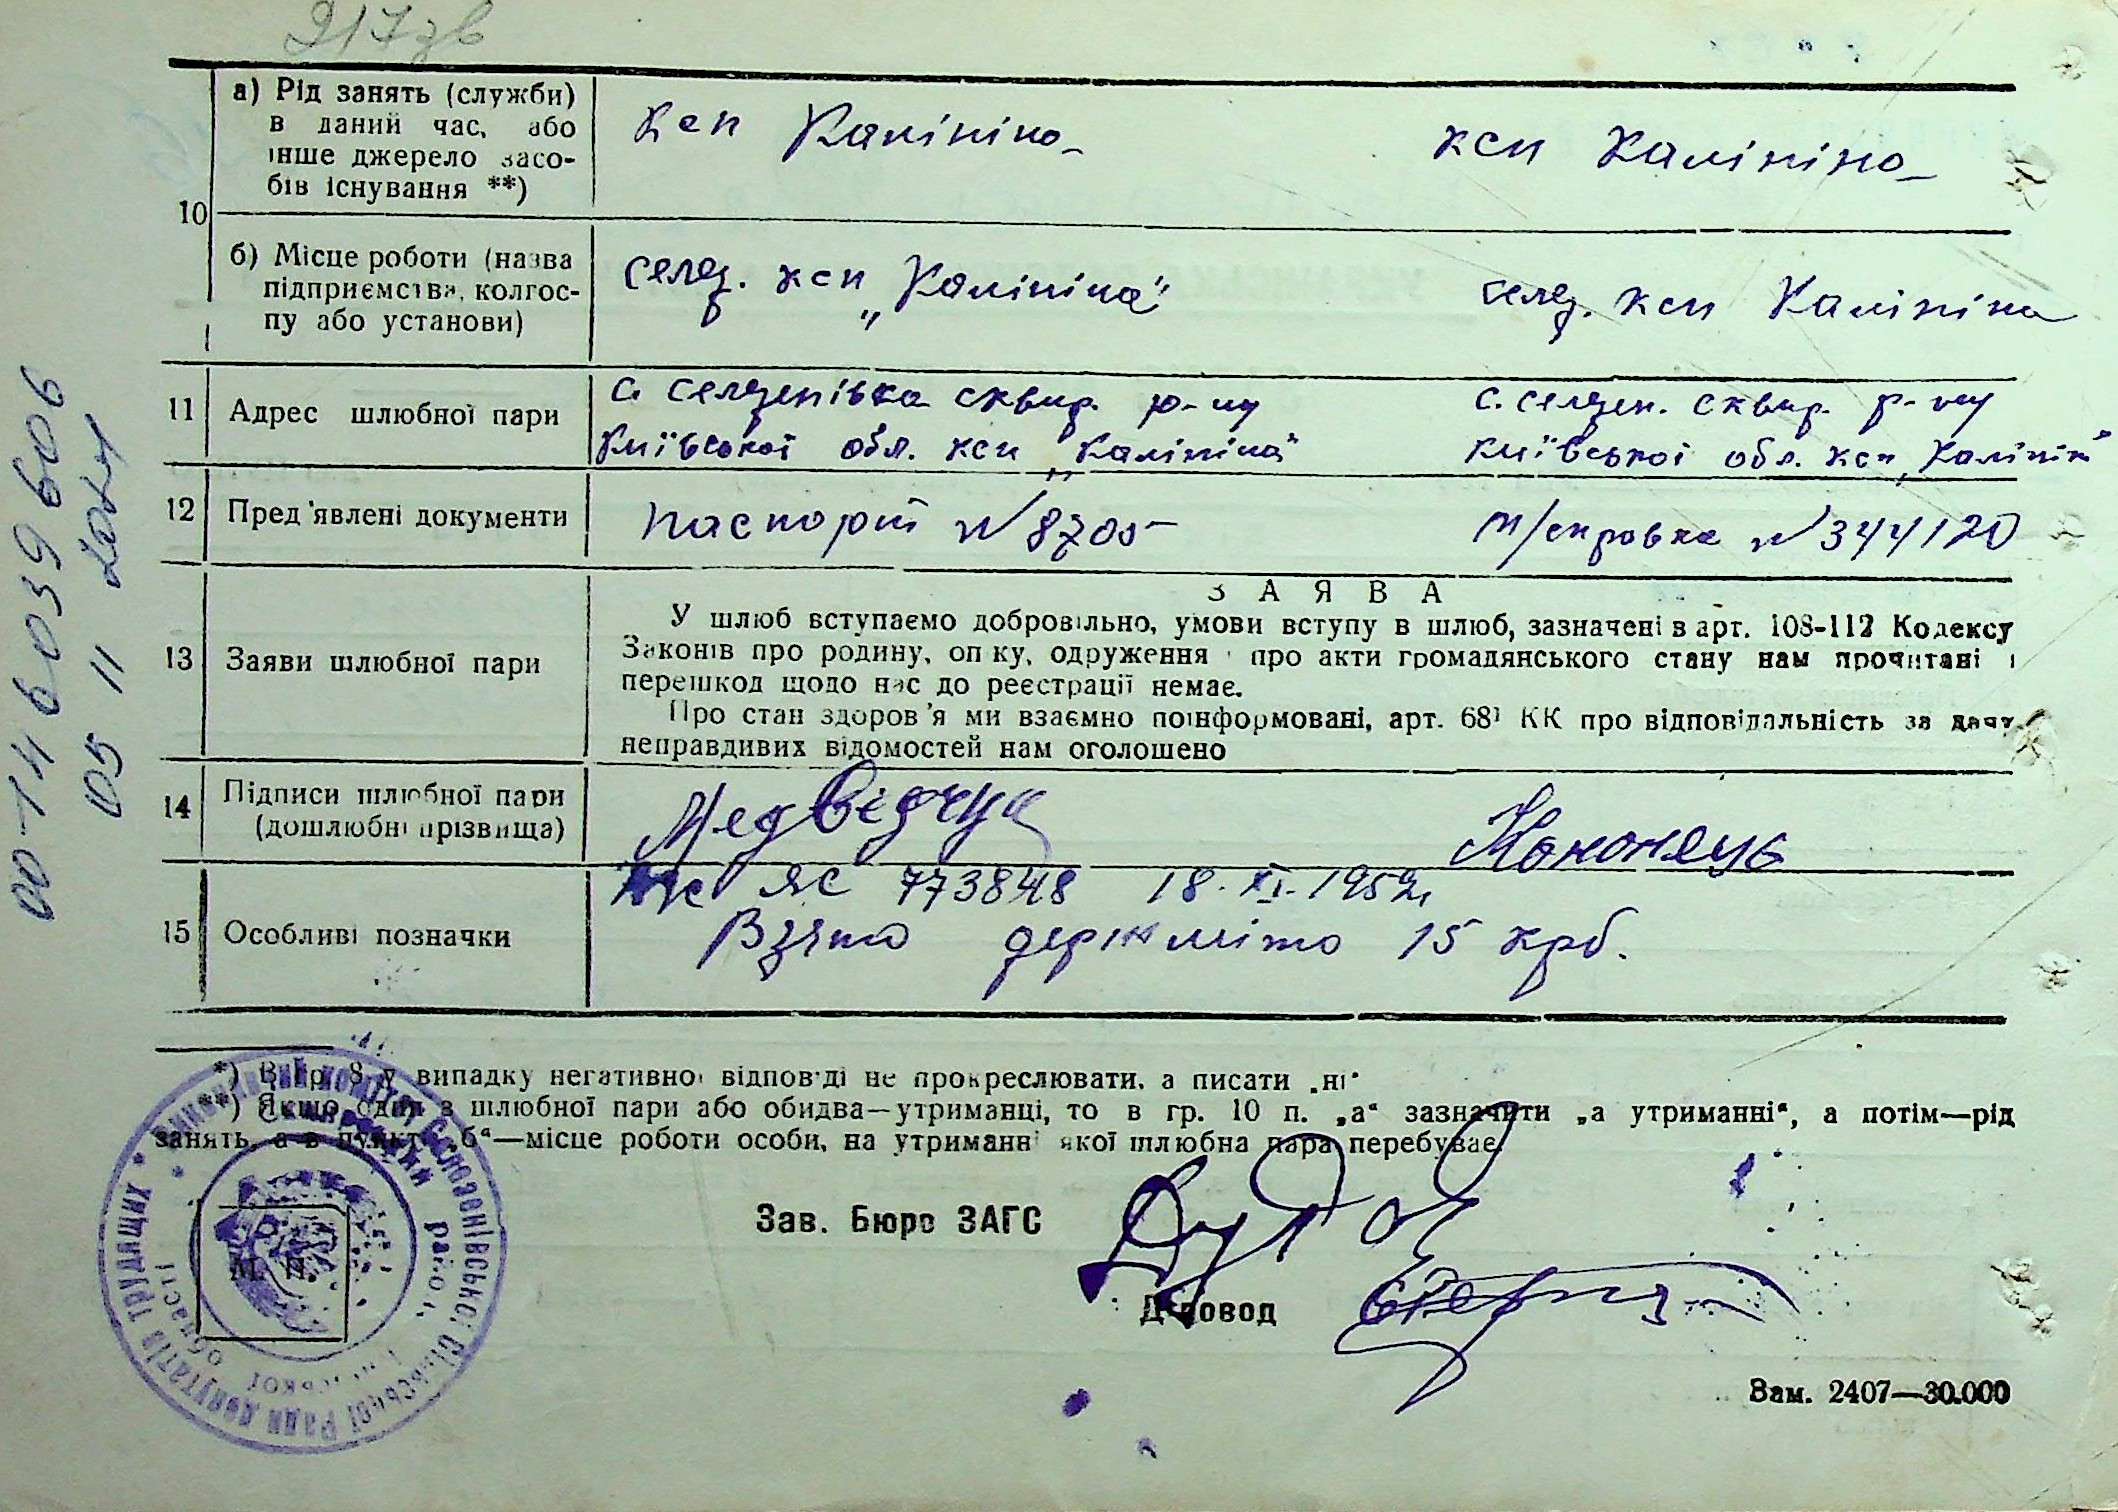 217зв
10
а) Рід занять (служби) в даний час, або інше джерело засобів існування **)
ксп Калініна
ксп Калініна
б) Місце роботи (назва підприємства, колгоспу або установи)
селез. ксп „Калініна"
селез. ксп Калініна
11 Адрес шлюбної пари
с. селезенівка сквир. р-ну
Київської обл. ксп „Калініна"
с. селезен. сквир. р-ну
Київської обл. ксп „Калінін"
12 Пред'явлені документи
паспорт № 8705
справка № 344120
13 Заяви шлюбної пари
ЗАЯВА
У шлюб вступаємо добровільно, умови вступу в шлюб, зазначені в арт. 108-112 Кодексу
Законів про родину, опіку, одруження і про акти громадянського стану нам прочитані і
перешкод щодо нас до реєстрації немає.
Про стан здоров'я ми взаємно поінформовані, арт. 68¹ КК про відповідальність за дачу
неправдивих відомостей нам оголошено
14 Підписи шлюбної пари
(дошлюбні прізвища)
Медведчук
Кононець
15 Особливі позначки
ЯС 773848 18.XI.1952
Взято держмито 15 крб.
*) В гр. 8 у випадку негативної відповіді не прокреслювати, а писати „ні"
**) Якщо один з шлюбної пари або обидва—утриманці, то в гр. 10 п. „а" зазначити „а утриманні", а потім—рід
занять, а в пункті „б"—місце роботи особи, на утриманні якої шлюбна пара перебуває.
Зав. Бюро ЗАГС
М. П.
Діловод
Зам. 2407—30.000
00-14 6039606
05 11